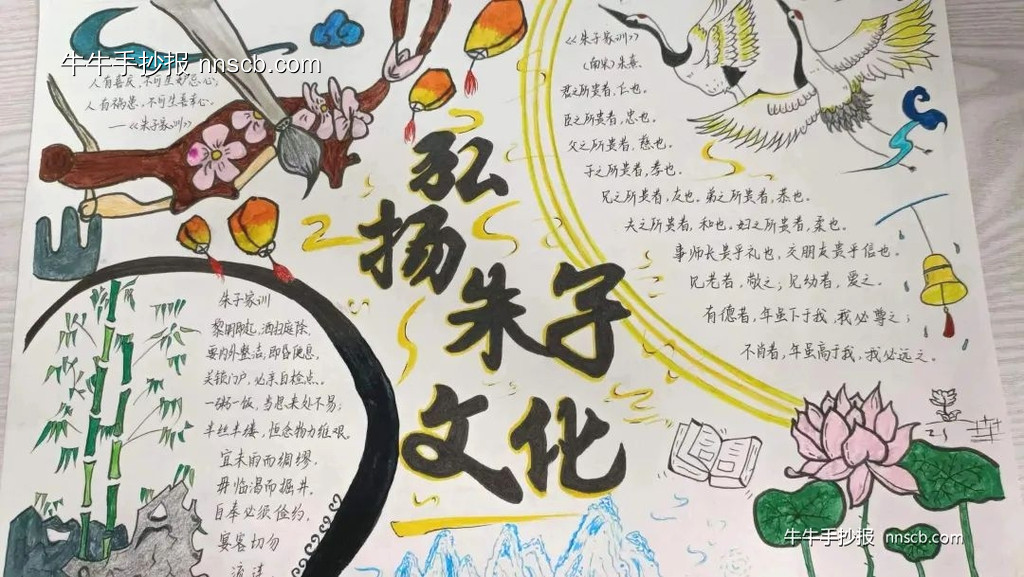 牛牛手抄报 nnscb.com
人有喜庆,不可生妒忌心;
人有祸患,不可生喜幸心。
——《朱子家训》
弘扬朱子文化
《朱子家训》
(南宋)朱熹
君之所贵者,仁也。
臣之所贵者,忠也。
父之所贵者,慈也。
子之所贵者,孝也。
兄之所贵者,友也。弟之所贵者,恭也。
夫之所贵者,和也。妇之所贵者,柔也。
事师长贵乎礼也,交朋友贵乎信也。
见老者,敬之;见幼者,爱之。
有德者,年虽下于我,我必尊之;
不肖者,年虽高于我,我必远之。
朱子家训
黎明即起,洒扫庭除,
要内外整洁,即昏便息,
关锁门户,必亲自检点。
一粥一饭,当思来处不易;
半丝半缕,恒念物力维艰。
宜未雨而绸缪,
毋临渴而掘井。
自奉必须俭约,
宴客切勿
流连
牛牛手抄报 nnscb.com